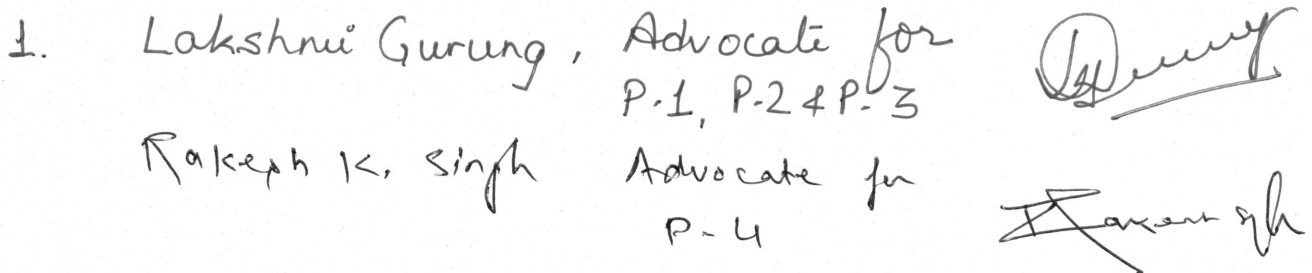 1. Lakshmi Gurung, Advocate for
P.1, P-2 & P-3
Rakesh K. Singh Advocate for
P-4